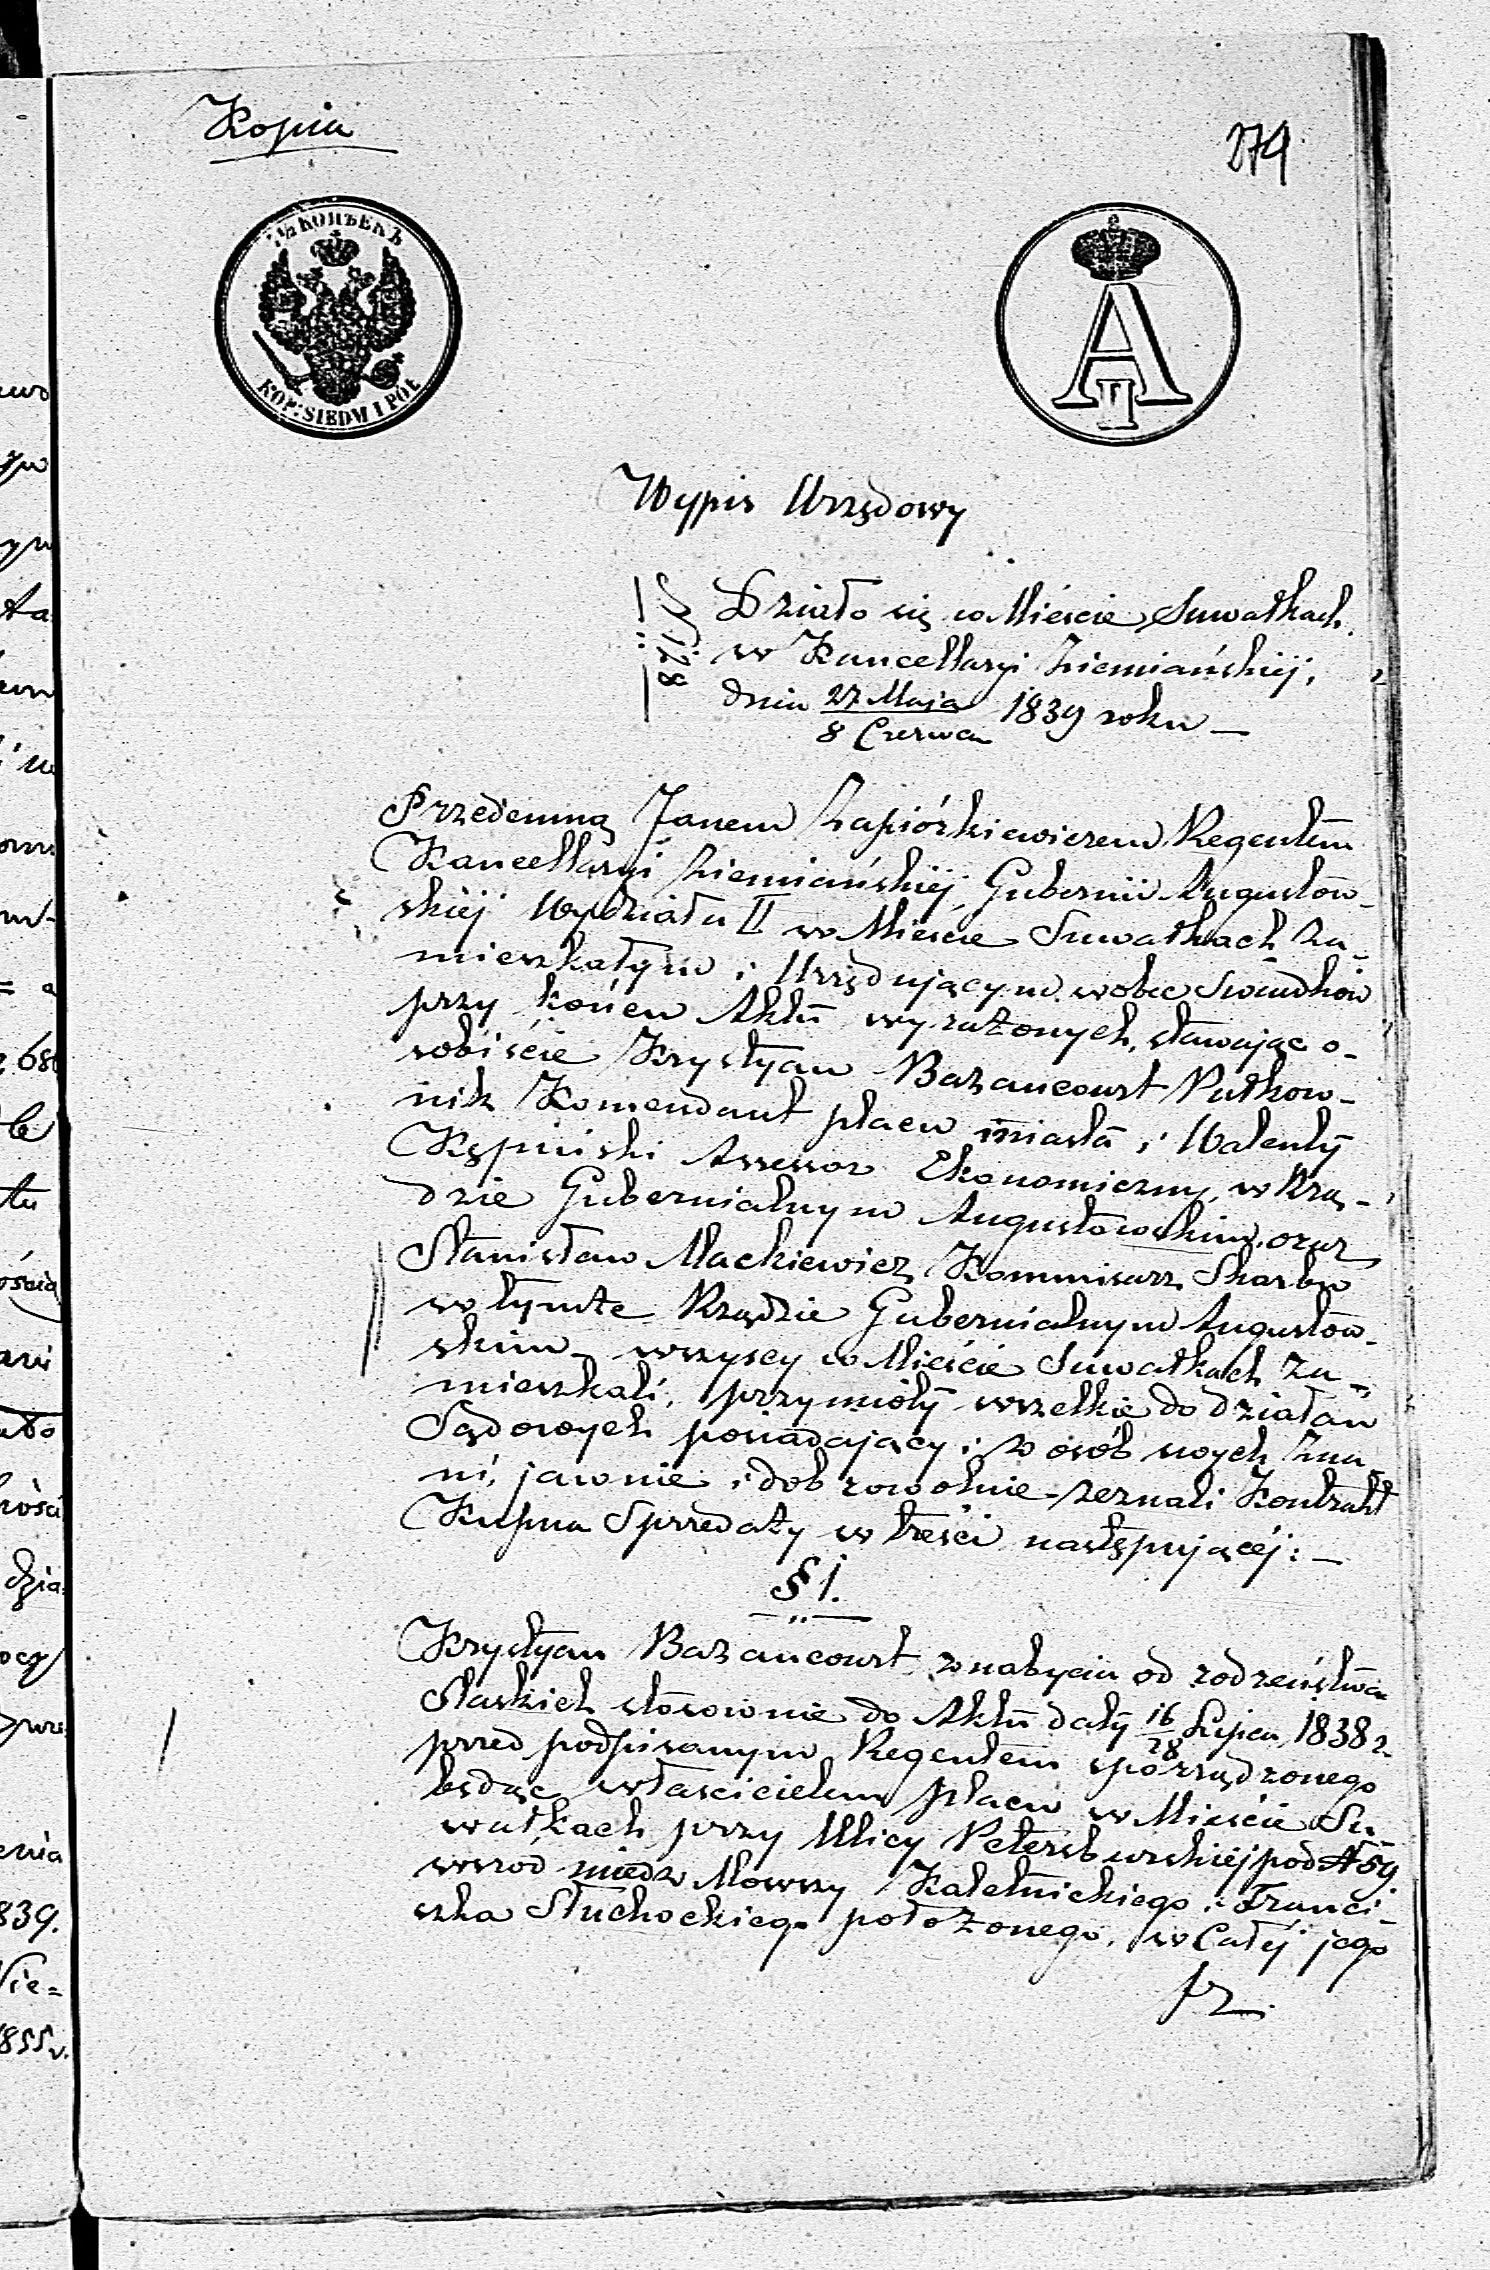 Kopia
279
7½ КОПѢЕКЪ
KOP: SIEDM I PÓŁ
А
П
Wypis Urzędowy
Działo się w Mieście Suwałkach
w Kancellaryi Ziemiańskiej,
dnia 27 Maja / 8 Czerwca 1839 roku —
Przedemną Janem Zapiórkiewiczem Regentem
Kancellaryi Ziemiańskiej Gubernii Augustow-
skiej Wydziału II w Mieście Suwałkach za-
mieszkałym i Urzędującym wobec Swiadków
przy końcu Aktu wyrażonych, stawając o-
sobiście Krystyan Bazancourt Pułkow-
nik Komendant placu miasta i Walenty
Kępiński Assessor Ekonomiczny w Rzą-
dzie Gubernialnym Augustowskim, oraz
Stanisław Mackiewicz Kommisarz Skarbu
w tymże Rządzie Gubernialnym Augustow-
skim – wszyscy w Mieście Suwałkach za-
mieszkali, przymioty wszelkie do działań
Sądowych posiadający i z osób swych zna-
ni, jawnie i dobrowolnie zeznali Kontrakt
Kupna Sprzedaży w treści następującéj: —
§ 1.
Krystyan Bazancourt z nabycia od rodzeństwa
Slaskich stosownie do Aktu daty 16/28 Lipca 1838 r.
przed podpisanym Regentem sporządzonego
będąc właścicielem placu w Mieście Su-
wałkach przy Ulicy Petersburskiej pod № 59
wsrod miedz Mowszy Kaletnickiego i Franci-
szka Słuchockiego położonego, w Całej jego